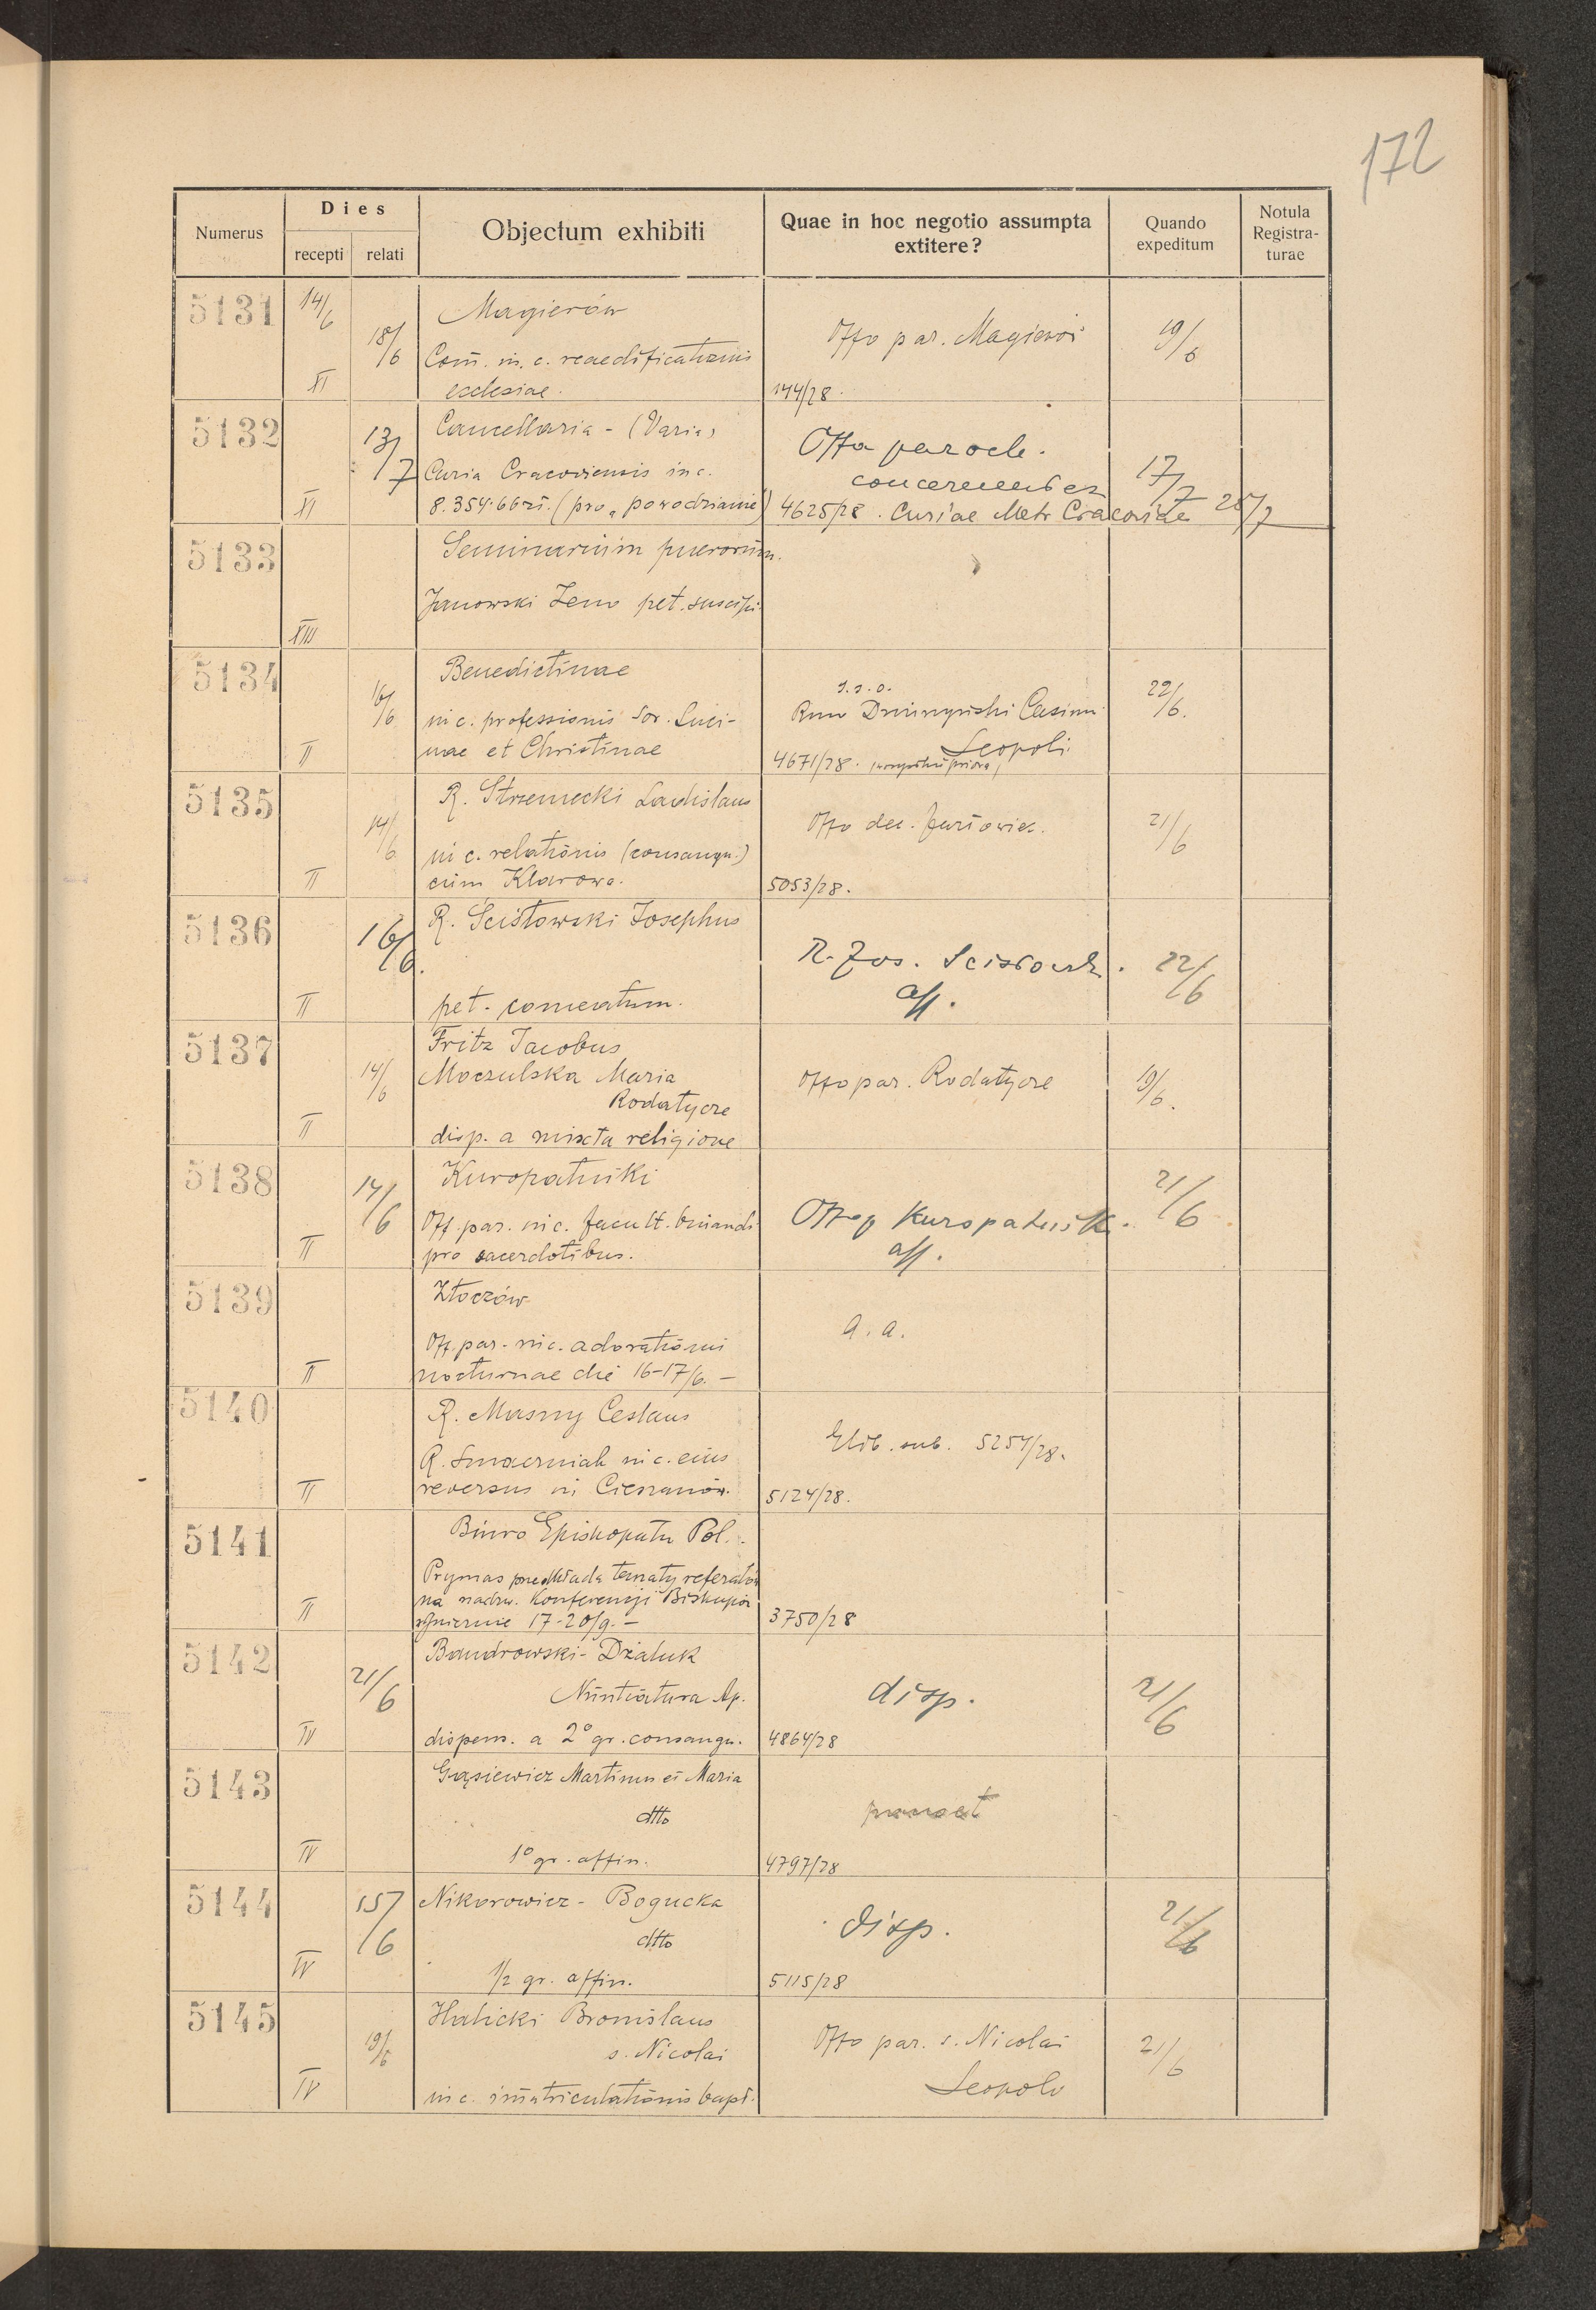 172
Numerus
Dies
recepti relati
Objectum exhibiti
Quae in hoc negotio assumpta
extitere?
Quando
expeditum
Notula
Registra-
turae
5131 14/6 18/6 XI
Magierów
Com. in c. reaedificationis
ecclesiae.
Offo par. Magierów
144/28.
19/6
5132 13/7 XI
Cancellaria - (Varia)
Curia Cracoviensis in c.
8.354.66 zł. (pro „powodzianie")
Offa paroch.
concernentes
4625/28. Curiae Metr Cracoviae
17/7 25/7
5133 XIII
Seminarium puerorum.
Janowski Zeno pet. suscipi
5134 16/6 II
Benedictinae
in c. professionis Sor. Luci-
nae et Christinae
Rmo Casim.
Leopoli.
4671/28.
22/6.
5135 14/6 II
R. Strzemecki Ladislaus
in c. relationis (consangu.)
cum Klarowa.
Offo dec.
5053/28.
21/6
5136 16/6. II
R. Ścisłowski Josephus
pet. comeatum.
R. Jos. Scisłowsk.
aff.
22/6
5137 14/6 II
Fritz Jacobus
Moczulska Maria
Rodatycze
disp. a mixta religione
Offo par. Rodatycze
19/6.
5138 14/6 II
Kuropatniki
Off. par. in c. facult. binandi
pro sacerdotibus.
Offo p Kuropatnik.
aff.
21/6
5139 II
Złoczów
Off. par. in c. adorationi
nocturnae die 16-17/6. -
a. a.
5140 II
R. Masny Ceslaus
R. in c. eius
reversus in Cieszanów.
Elib. sub. 5254/28.
5124/28.
5141 II
Biuro Episkopatu Pol.
Prymas przedkłada tematy referatów
na nadzw. Konferencji Biskupów
w Gnieźnie 17-20/9. -
3750/28
5142 21/6 IV
Bandrowski - Dżaluk
Nuntiatura Ap.
dispens. a 2° gr. consangu.
disp.
4864/28
21/6
5143 IV
Gąsiewicz Martinus et Maria
dtto
1° gr. affin.
4797/28
5144 15/6 IV
Nikorowicz - Bogucka
dtto
1/2 gr. affin.
disp.
5115/28
21/6
5145 19/6 IV
Halicki Bronislaus
s. Nicolai
in c. imatriculationis bapt.
Offo par. s. Nicolai
Leopoli
21/6